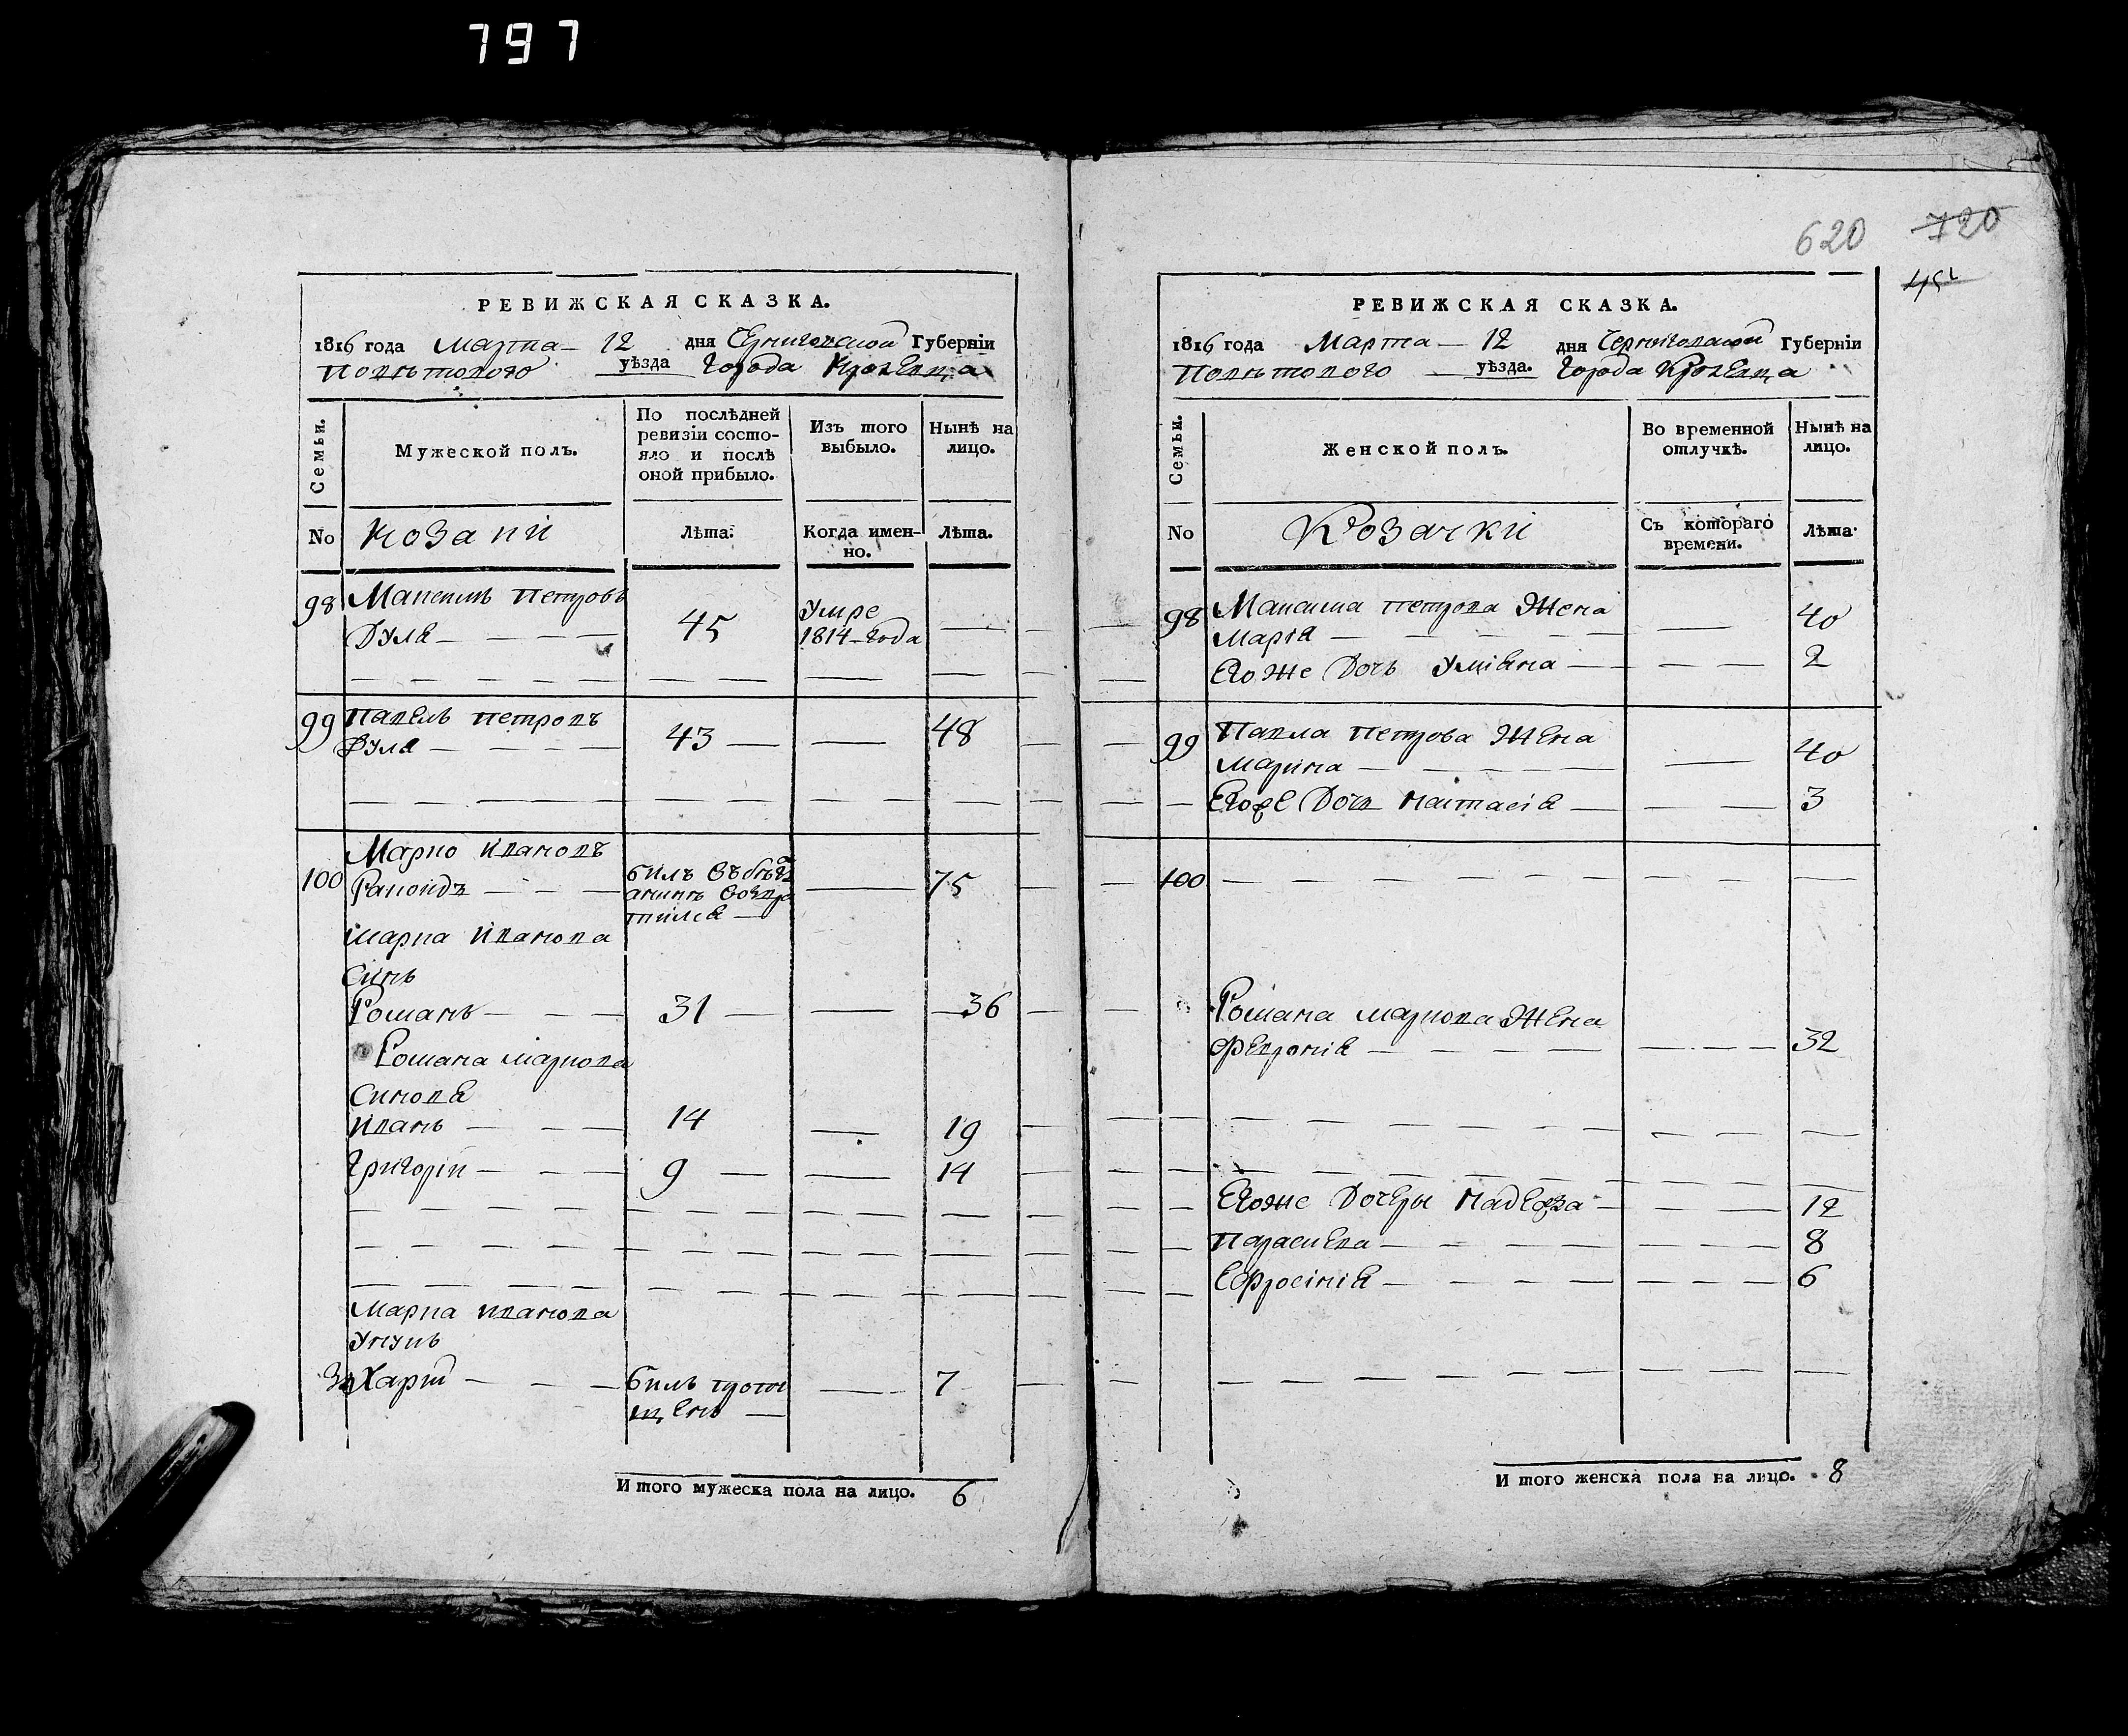 797
620 720
РЕВИЖСКАЯ СКАЗКА.
1816 года Марта 12 дня Черниговской Губернїи
Повѣтового уѣзда Города Кролевца
Семьи.
Мужеской полъ.
По послѣдней ревизїи состояло и послѣ оной прибыло.
Изъ того выбыло.
Нынѣ на лицо.
No Козаки Лѣта. Когда именно. Лѣта.
98 Максимъ Петровъ
Дуля 45 Умре 1814 Года
99 Павелъ Петровъ
Дуля 43 48
100 Марко Ивановъ
билъ
75
Марка Иванова
Синъ
Романъ 31 36
Романа Маркова
Синовя
Иванъ 14 19
Григорій 9 14
Марка Иванова
Унукъ
Захарій билъ пропущенъ 7
И того мужеска пола на лицо. 6
РЕВИЖСКАЯ СКАЗКА.
1816 года Марта 12 дня Черниговской Губернїи
Повѣтового уѣзда. Города Кролевца
Семьи.
Женской полъ.
Во временной отлучкѣ.
Нынѣ на лицо.
No Козачки Съ котораго времени. Лѣта
98 Максима Петрова Жена
Марія 40
Егоже Дочь Уліяна 2
99 Павла Петрова Жена
Марина 40
Егоже Дочь Настасія 3
100
Романа Маркова Жена
Февронія 32
Егоже Дочеры Надежда 12
Параскева 8
Ефросинія 6
И того женска пола на лицо. 8